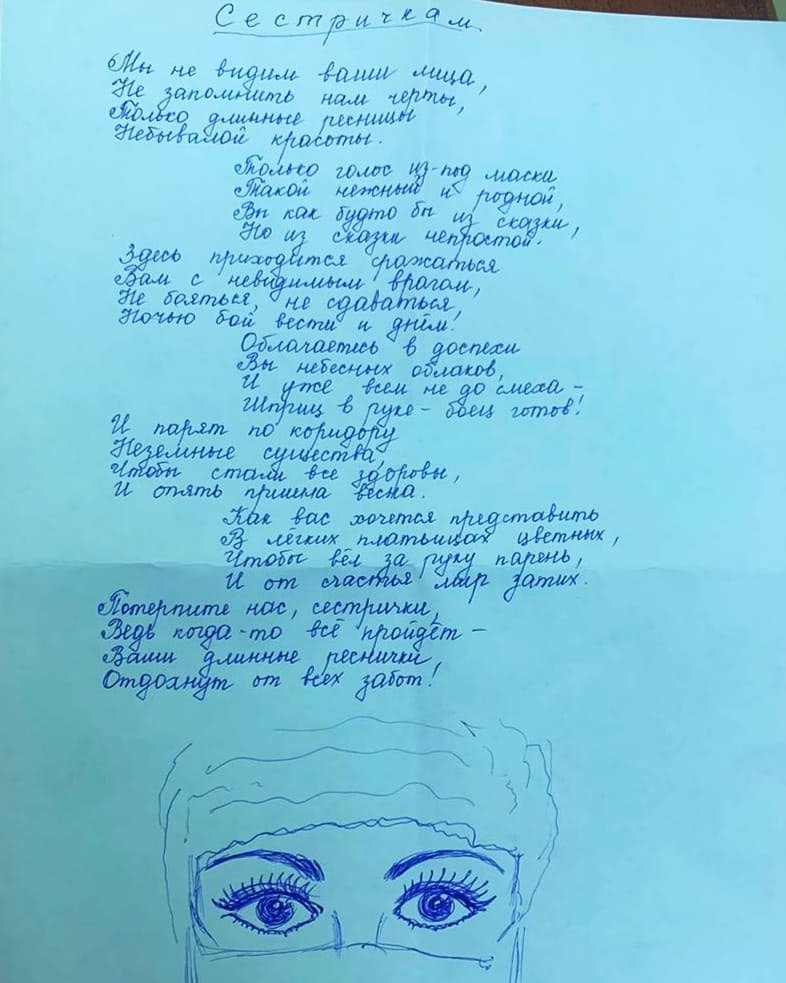 Сестричкам
Мы не видим ваши лица,
Не запомнить нам черты,
Только длинные ресницы
Небывалой красоты.
Только голос из-под маски
Такой нежный и родной,
Вы как будто бы из сказки,
Но из сказки непростой.
Здесь приходится сражаться
Вам с невидимым врагом,
Не бояться, не сдаваться,
Ночью бой вести и днём!
Облачаетесь в доспехи
Вы небесных облаков,
И уже всем не до смеха –
Шприц в руке – боец готов!
И парят по коридору
Неземные существа,
Чтобы стали все здоровы,
И опять пришла весна.
Как вас хочется представить
В лёгких платьицах цветных,
Чтобы вёл за руку парень,
И от счастья мир затих.
Потерпите нас, сестрички,
Ведь когда-то всё пройдёт –
Ваши длинные реснички
Отдохнут от всех забот!